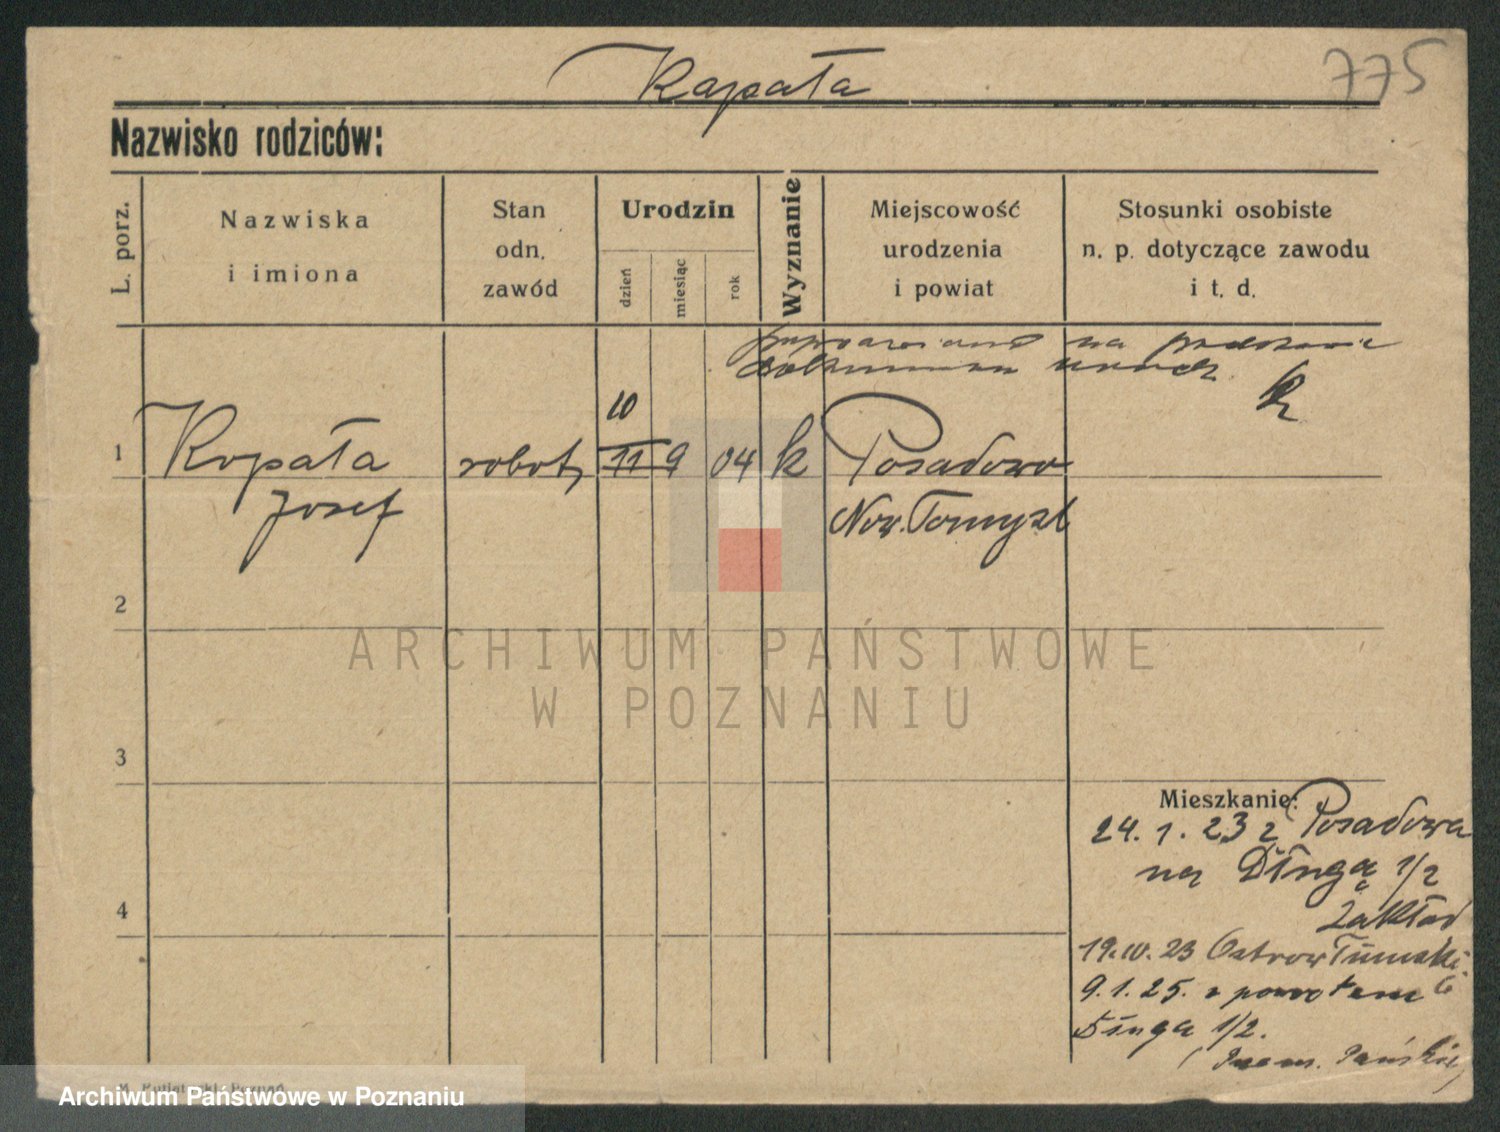 Kapała
775
Nazwisko rodziców:
L. porz.
Nazwiska
i imiona
Stan
odn.
zawód
Urodzin
dzień
miesiąc
rok
Wyznanie
Miejscowość
urodzenia
i powiat
Stosunki osobiste
n. p. dotyczące zawodu
i t. d.
na podstawie
10
1 Kopała robotn 11 9 04 k Posadowo
Josef Now. Tomyśl
2
ARCHIWUM PAŃSTWOWE
W POZNANIU
3
Mieszkanie:
24. 1. 23 z Posadowa
na Długą 1/2
Zakład
4
19.10.23 Ostrow Tumski
9.1.25. z powrotem
Długa 1/2.
Archiwum Państwowe w Poznaniu